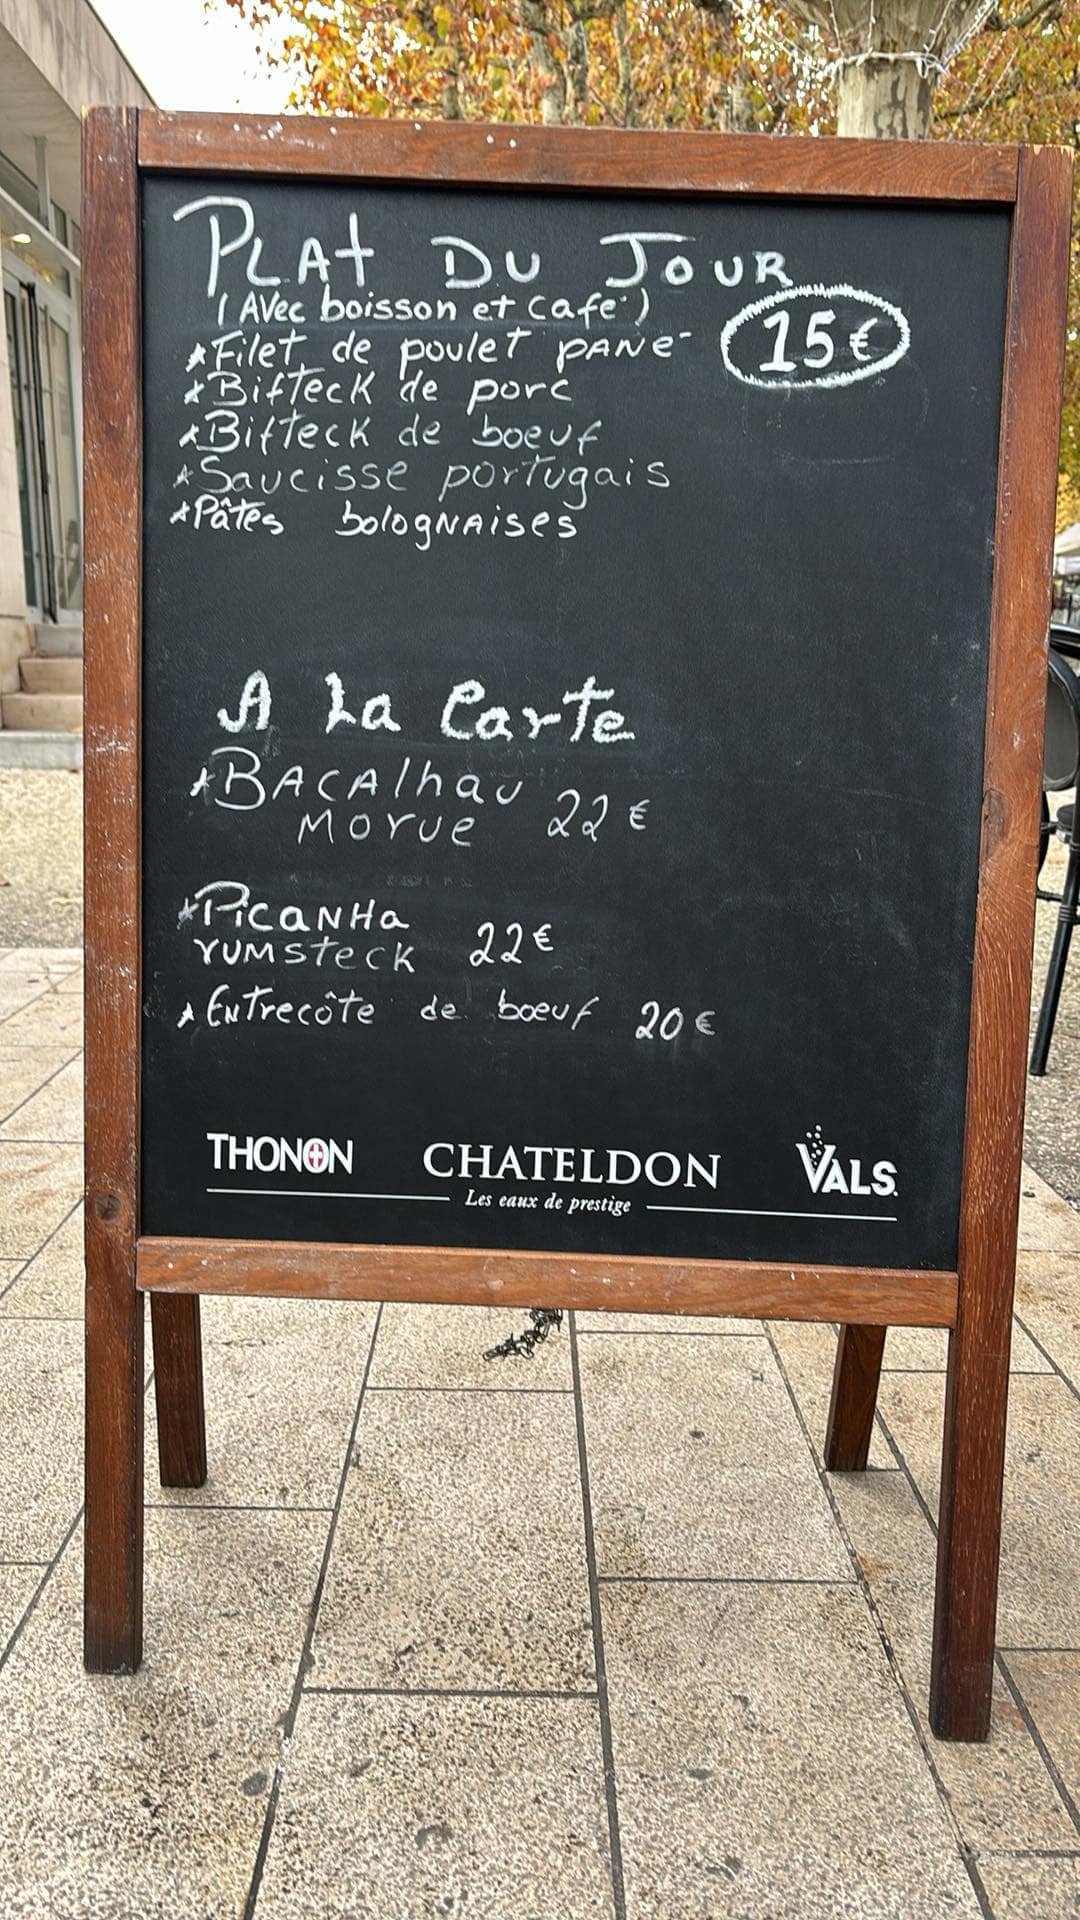 PLAT DU JOUR
(Avec boisson et cafe')
15€
*Filet de poulet pané
*Bifteck de porc
*Bifteck de boeuf
*Saucisse portugais
*Pâtes bolognaises
A La Carte
*Bacalhau
morue 22€
*Picanha
rumsteck 22€
*Entrecôte de boeuf 20€
THONON CHATELDON VALS
Les eaux de prestige